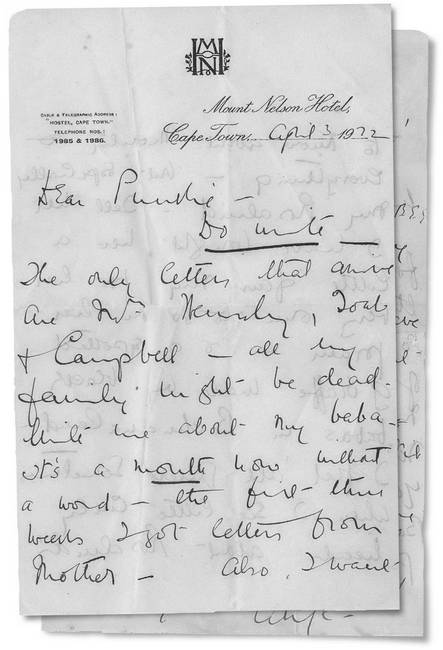 MHN
CABLE & TELEGRAPHIC ADDRESS:
"HOSTEL, CAPE TOWN."
TELEPHONE NOS:
1985 & 1986.
Mount Nelson Hotel,
Cape Town, April 3 1922
Dear Punkie —
Do write —
The only letters that arrive
are Mrs
& Campbell — all my
family might be dead.
Write me about my baba —
it's a month now without
a word — the first three
weeks I got letters from
Mother — Also, I want